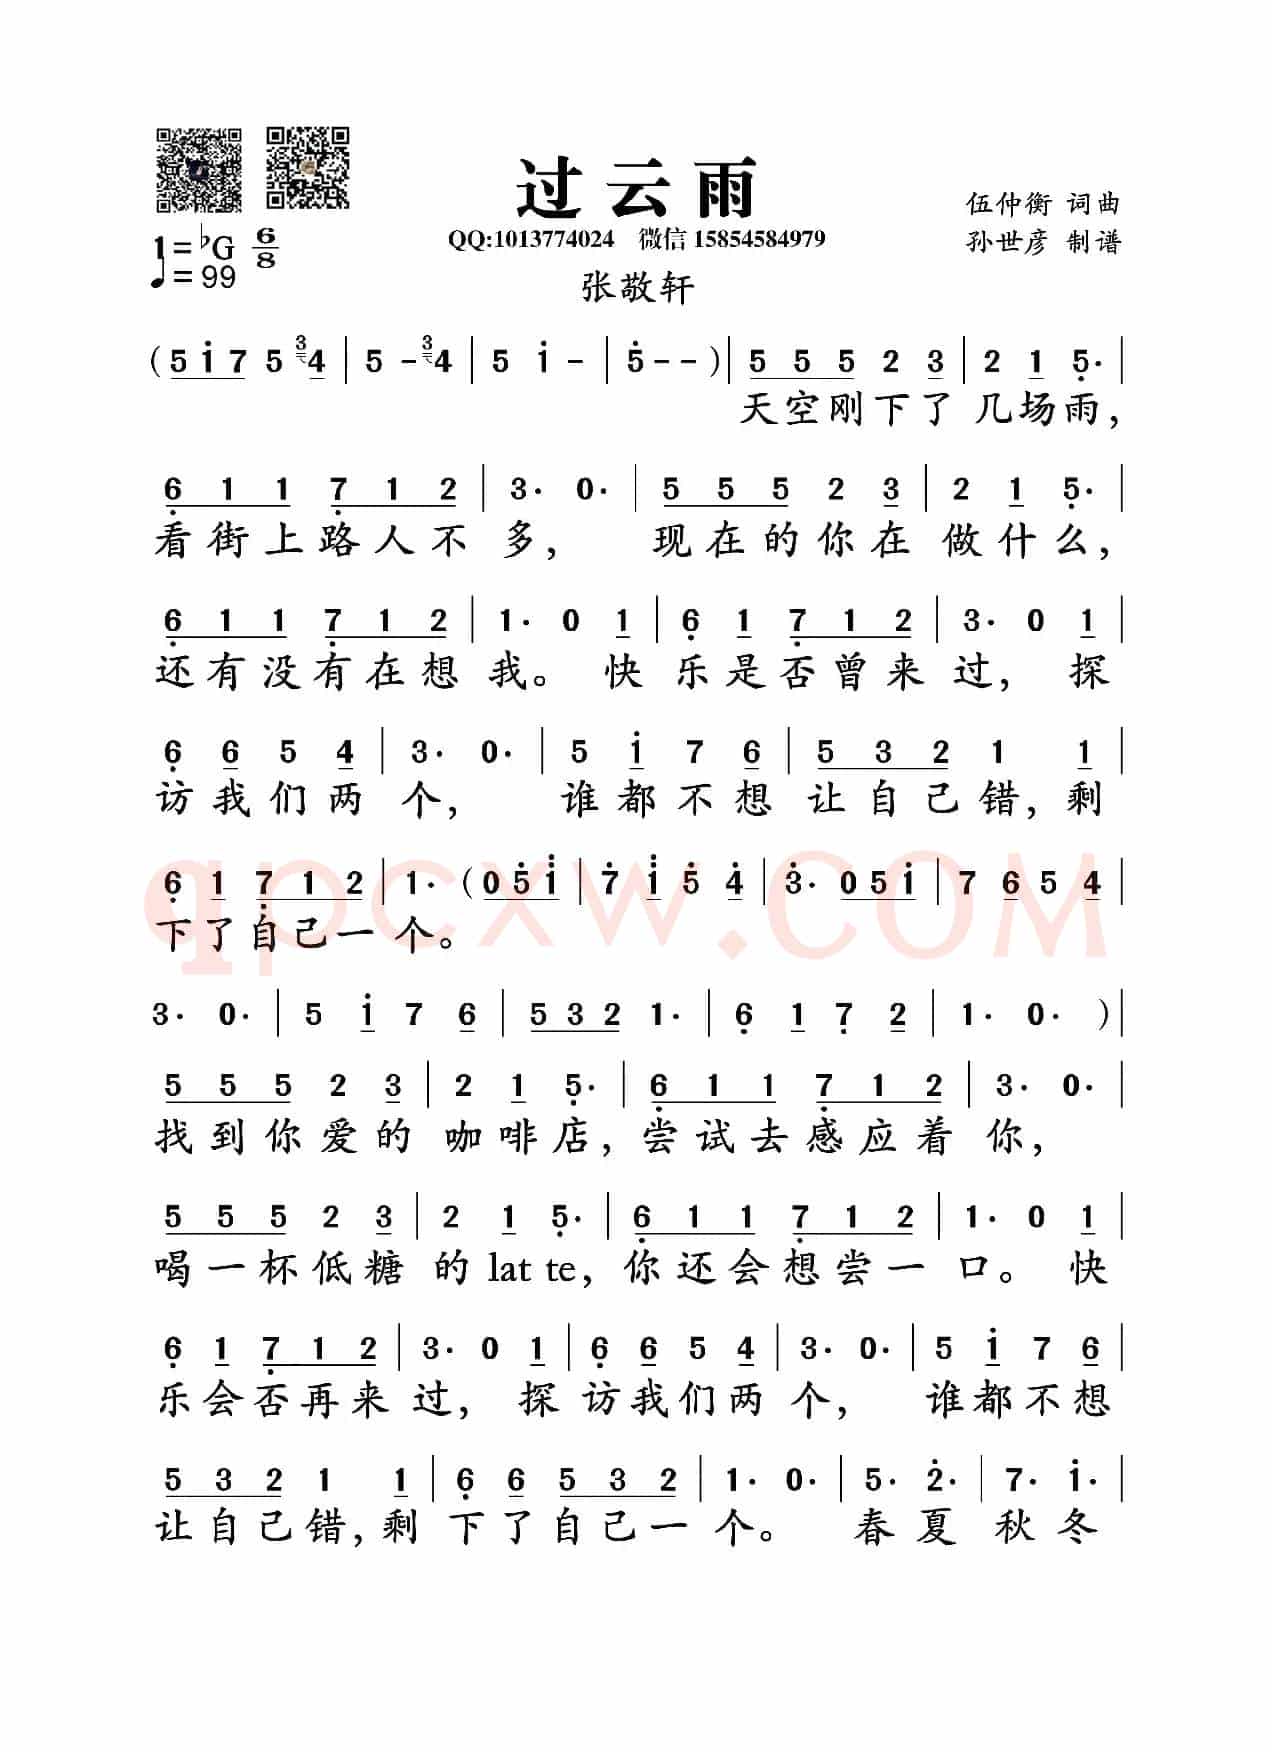 过云雨
伍仲衡 词曲
QQ:1013774024 微信 15854584979
孙世彦 制谱
1=♭G 6/8
♩=99
张敬轩
( 5 i 7 5 3 4 | 5 - 3 4 | 5 i - | 5 - - ) | 5 5 5 2 3 | 2 1 5· |
天空刚下了 几场雨,
6 1 1 7 1 2 | 3· 0· | 5 5 5 2 3 | 2 1 5· |
看街上路人不 多, 现在的你在 做什么,
6 1 1 7 1 2 | 1· 0 1 | 6 1 7 1 2 | 3· 0 1 |
还有没有在想 我。 快 乐是否曾来 过, 探
6 6 5 4 | 3· 0· | 5 i 7 6 | 5 3 2 1 1 |
访我们两 个, 谁都不想 让自己错,剩
6 1 7 1 2 | 1· ( 0 5 i | 7 i 5 4 | 3· 0 5 i | 7 6 5 4 |
下了自己一 个。
qpcxw.COM
3· 0· | 5 i 7 6 | 5 3 2 1· | 6 1 7 2 | 1· 0· ) |
5 5 5 2 3 | 2 1 5· | 6 1 1 7 1 2 | 3· 0· |
找到你爱的 咖啡店,尝试去感应着 你,
5 5 5 2 3 | 2 1 5· | 6 1 1 7 1 2 | 1· 0 1 |
喝一杯低糖 的 lat te,你还会想尝一 口。 快
6 1 7 1 2 | 3· 0 1 | 6 6 5 4 | 3· 0· | 5 i 7 6 |
乐会否再来 过, 探 访我们两 个, 谁都不想
5 3 2 1 1 | 6 6 5 3 2 | 1· 0· | 5· 2· | 7· i· |
让自己错,剩 下了自己一 个。 春 夏 秋 冬